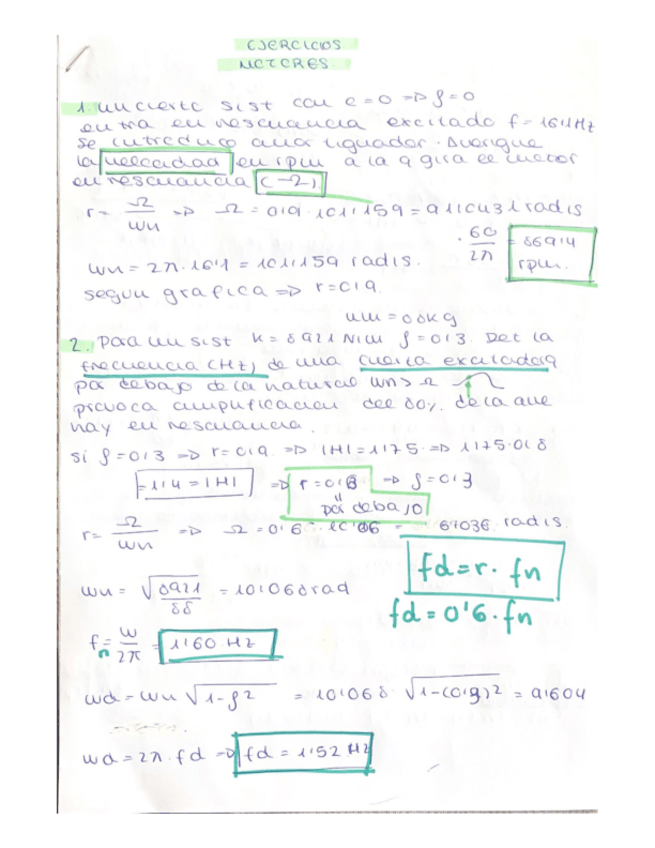 EJERCICIOS
MOTORES.
1. un cierto sist con c=0 => ρ=0
entra en resonancia excitado f=16'1Hz
Se introduce amortiguador. Averigue
la velocidad en rpm a la q gira el motor
en resonancia (-Ω).
r= Ω/wn => Ω=0'9·101'159=91'0431 rad/s
·60/2π = 869'4 rpm.
wn=2π·16'1=101'159 rad/s.
segun grafica => r=0'9.
m=88kg
2. Para un sist k=8921 N/m ρ=0'3. Det la
frecuencia (Hz) de una fuerza excitadora
por debajo de la natural wn>Ω
provoca amplificacion del 80% de la que
hay en resonancia.
si ρ=0'3 => r=0'9. => |H|=1'75 => 1'75·0'8
=1'4=|H| => r=0'6 => ρ=0'3
"
por debajo
r= Ω/wn => Ω=0'6·10'06= 6'036 rad/s.
wn= √8921/88 =10'068 rad
fd=r·fn
fd=0'6·fn
fn= w/2π = 1'60 Hz
wd=wn √1-ρ² =10'068·√1-(0'3)² =9'604
wd=2π·fd => fd=1'52 Hz